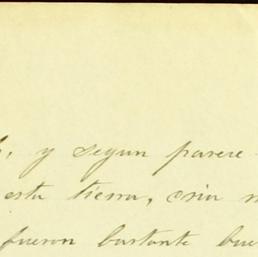 y segun parece
esta tierra, cria
fueron bastante bue